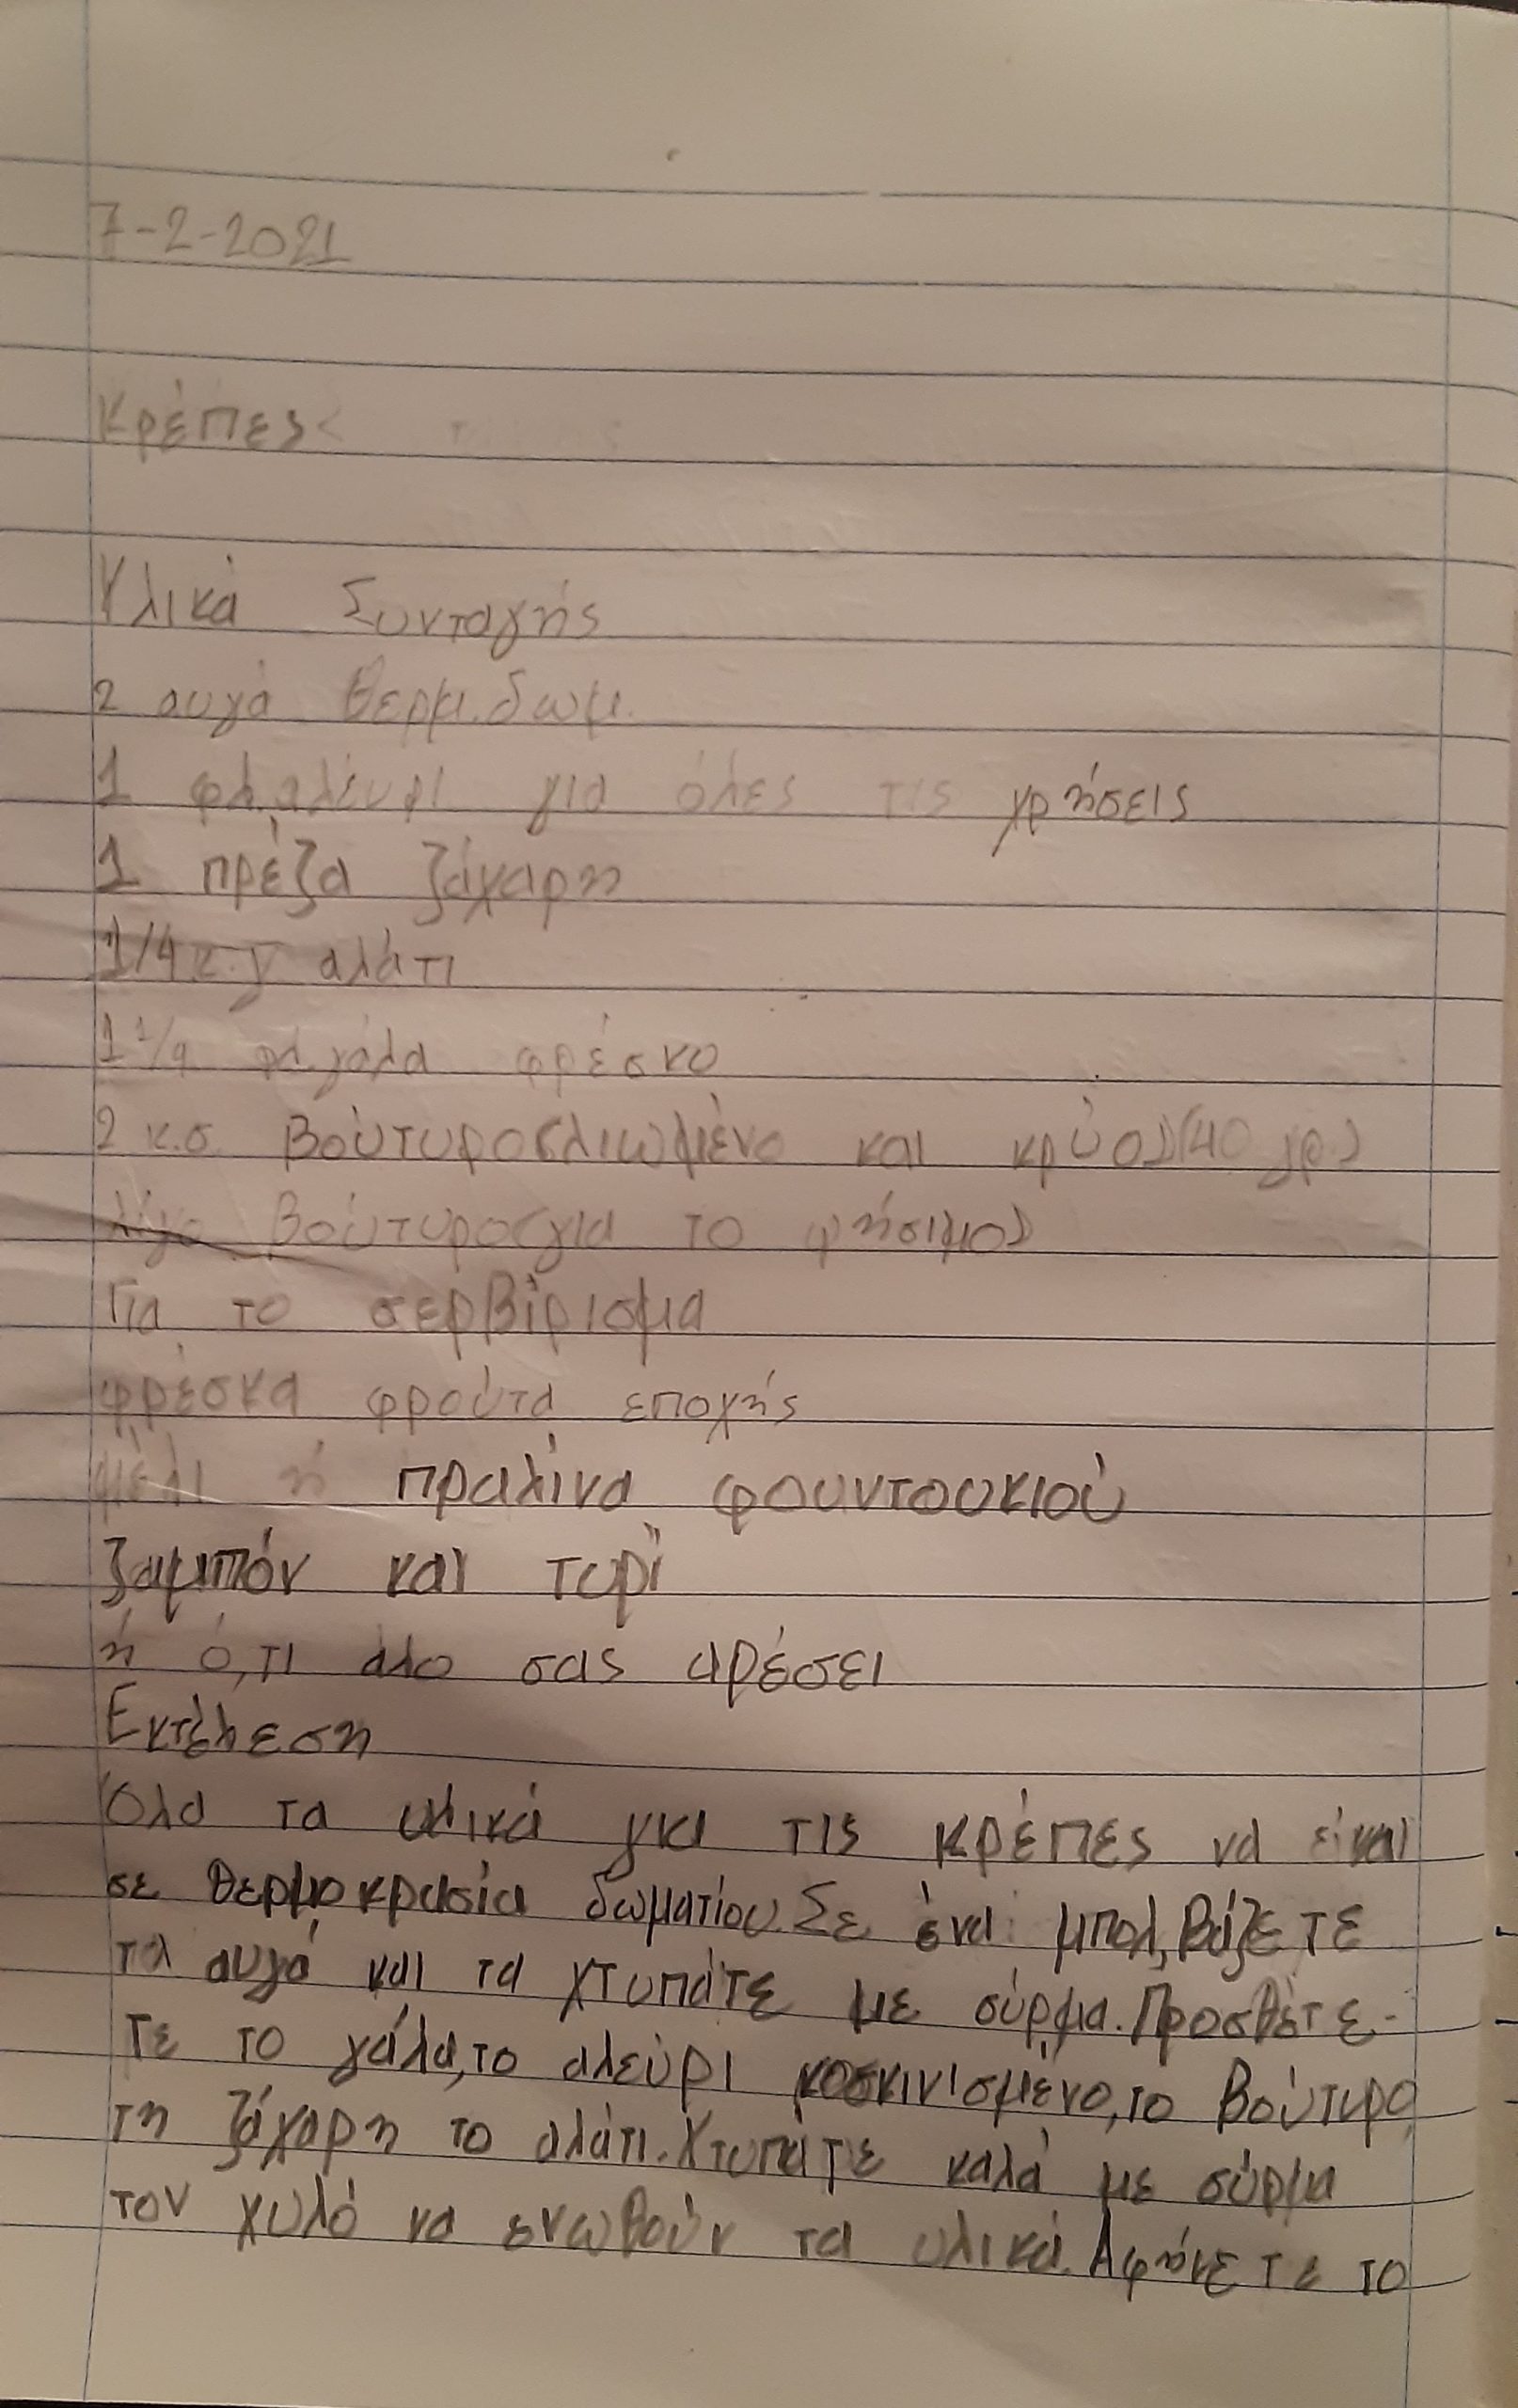 7-2-2021
Κρέπες
Υλικά Συνταγής
2 αυγά θερμ.δωμ.
1 φλ.αλεύρι για όλες τις χρήσεις
1 πρέζα ζάχαρη
1/4 κ.γ αλάτι
1 1/4 φλ.γάλα φρέσκο
2 κ.σ. βούτυρο(λιωμένο και κρύο)(40 γρ.)
λίγο βούτυρο(για το ψήσιμο)
Για το σερβίρισμα
φρέσκα φρούτα εποχής
μέλι ή πραλίνα φουντουκιού
ζαμπόν και τυρί
ή ό,τι άλο σας αρέσει
Εκτέλεση
Όλα τα υλικά για τις κρέπες να είναι
σε θερμοκρασία δωματίου.Σε ένα μπολ,βάζετε
τα αυγά και τα χτυπάτε με σύρμα.Προσθέτε-
τε το γάλα,το αλεύρι κοσκινισμένο,το βούτυρο,
τη ζάχαρη το αλάτι.Χτυπάτε καλά με σύρμα
τον χυλό να ενωθούν τα υλικά.Αφήνετε το